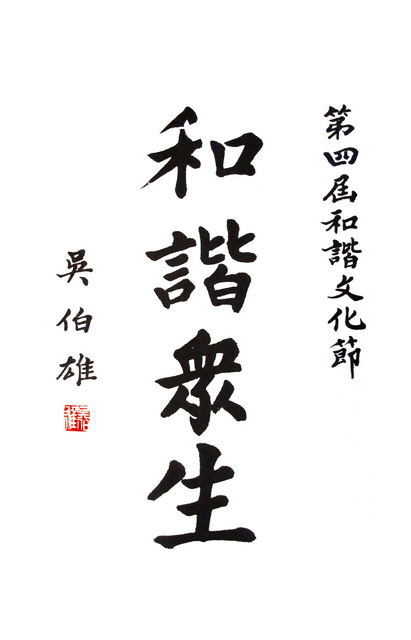 第四屆和諧文化節
和諧眾生
吳伯雄